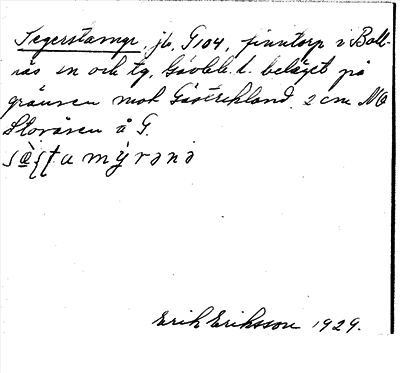 Segerstamyr, jb, G104, finntorp i Boll-
näs sn och tg, Gävleb. l. beläget på
gränsen mot Gästrikland, 2 cm NO
Storåsen å G.
Erik Eriksson 1929.